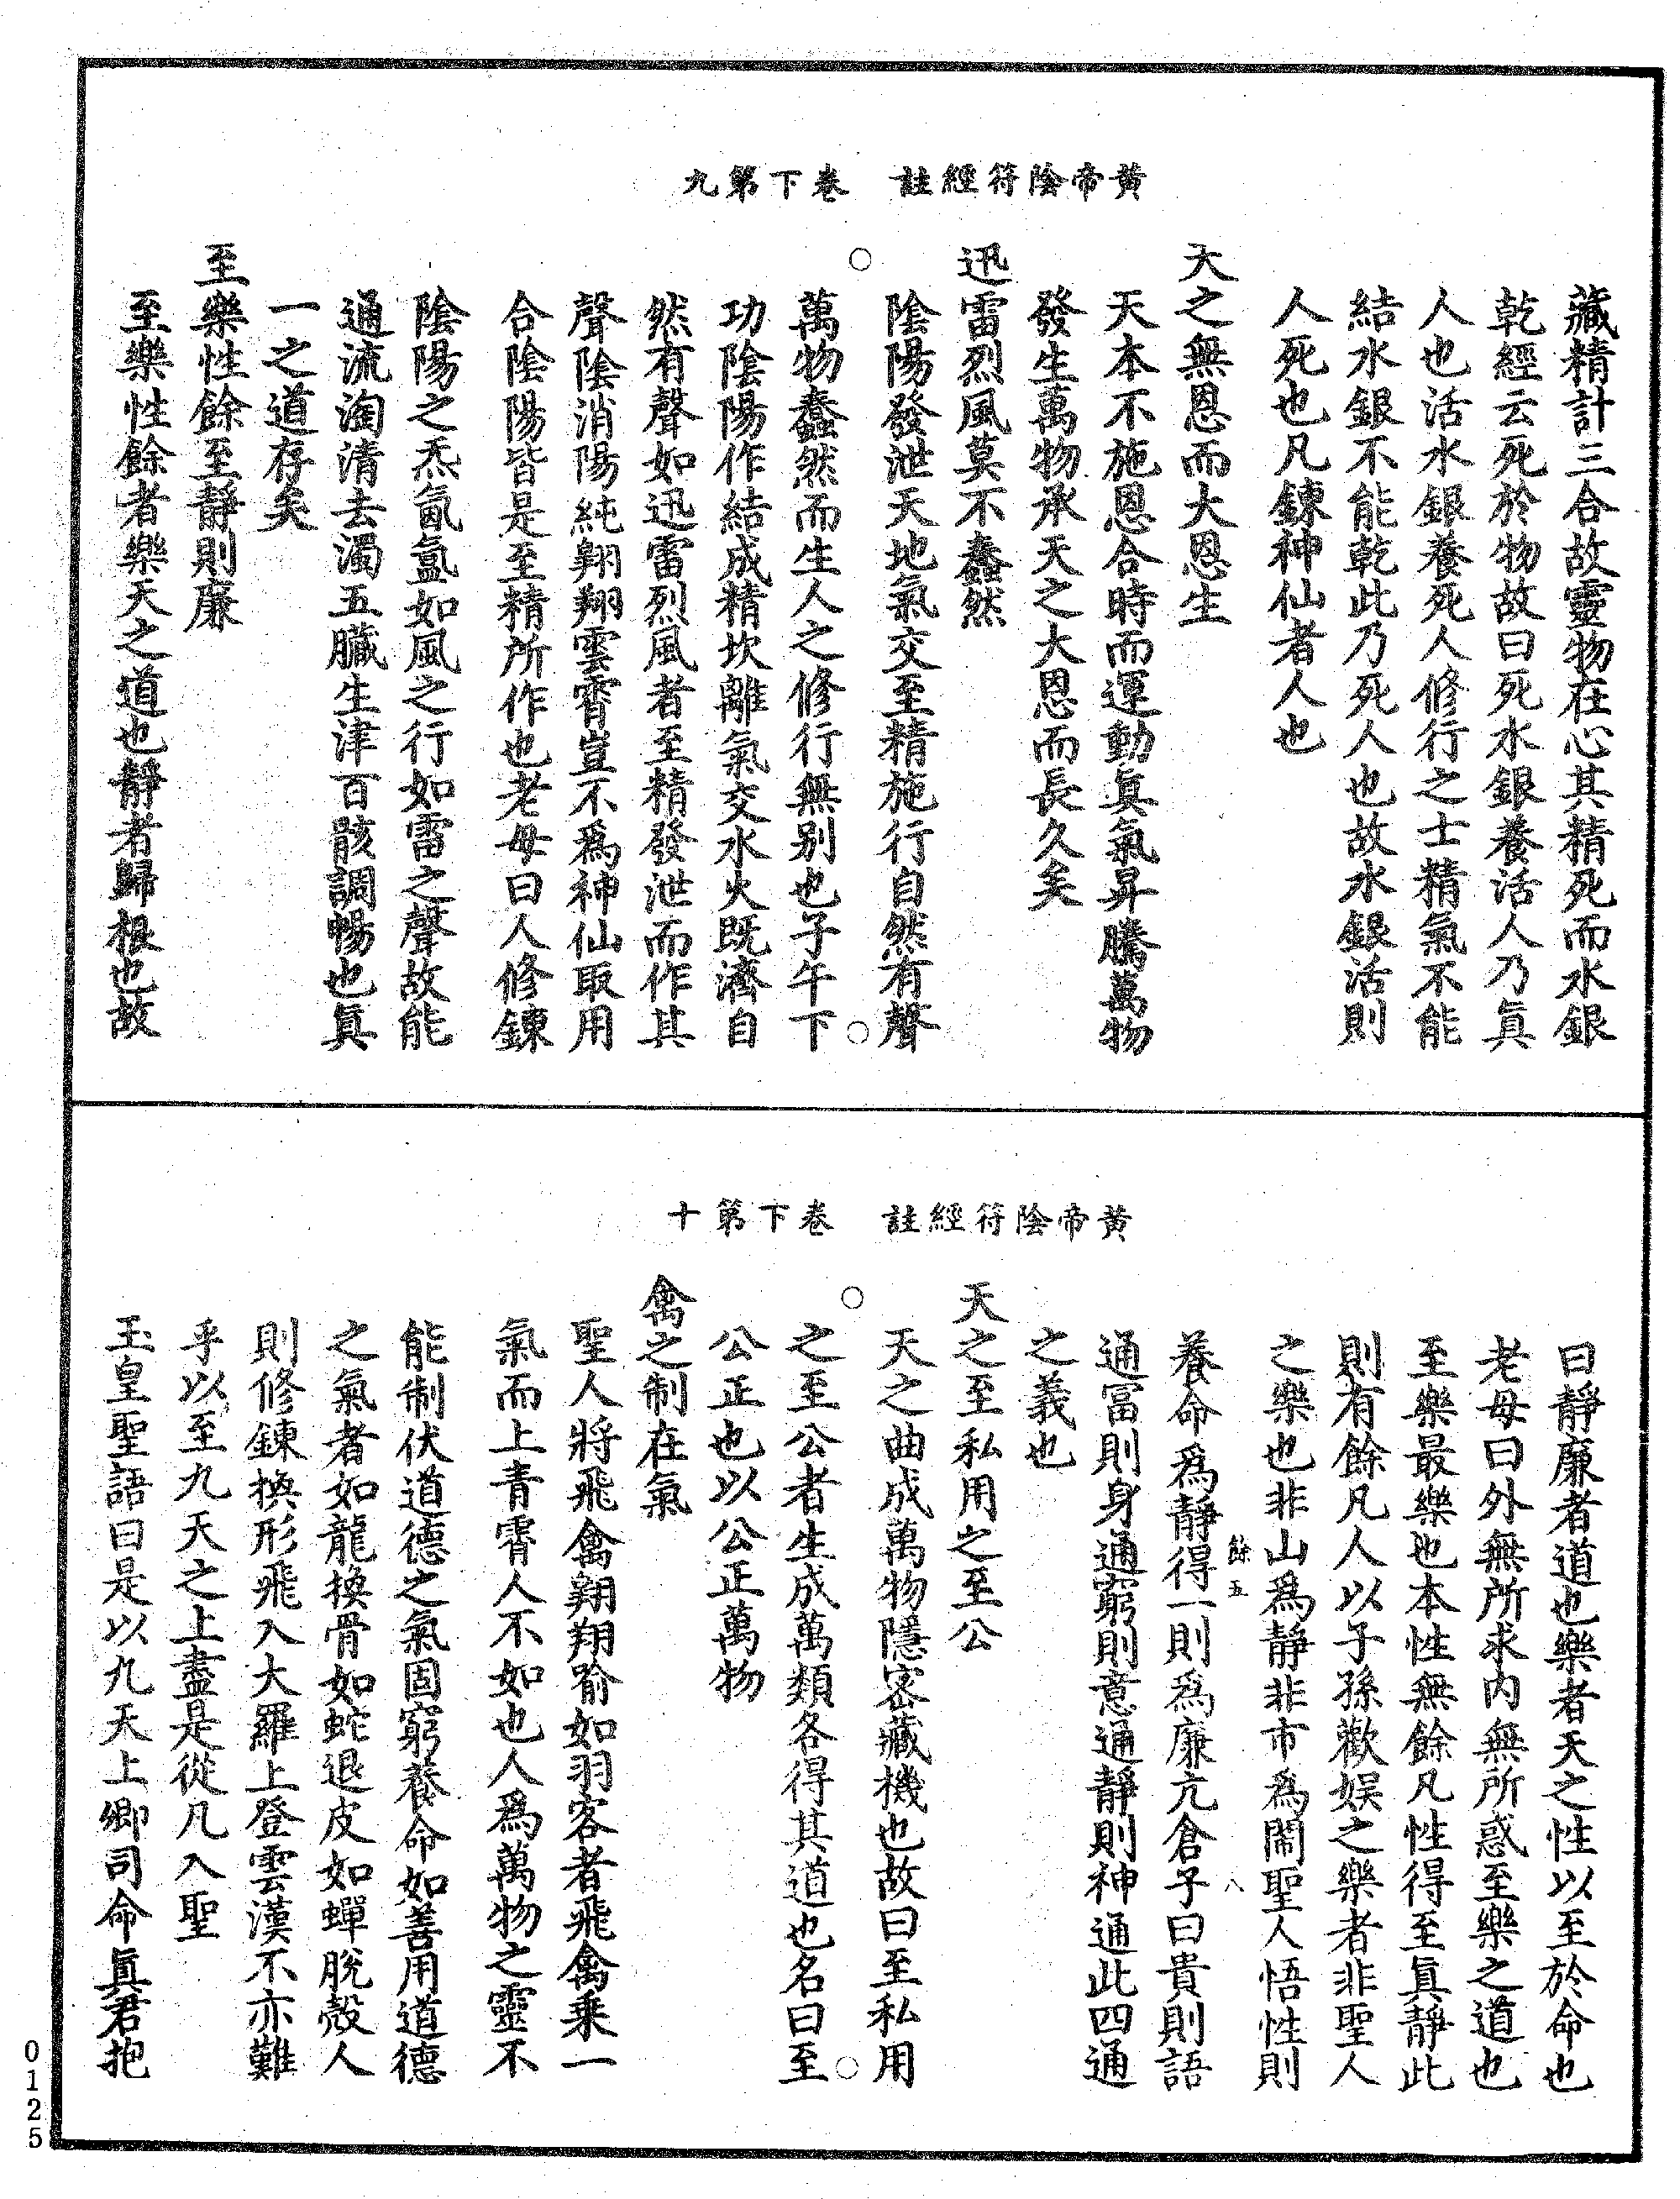 黃帝陰符經註　卷下第九
藏精計三合故靈物在心其精死而水銀
乾經云死於物故曰死水銀養活人乃眞
人也活水銀養死人修行之士精氣不能
結水銀不能乾此乃死人也故水銀活則
人死也凡鍊神仙者人也
天之無恩而大恩生
天本不施恩合時而運動眞氣昇騰萬物
發生萬物承天之大恩而長久矣
迅雷烈風莫不蠢然
陰陽發泄天地氣交至精施行自然有聲
萬物蠢然而生人之修行無別也子午下
功陰陽作結成精坎離氣交水火既濟自
然有聲如迅雷烈風者至精發泄而作其
聲陰消陽純翱翔雲霄豈不爲神仙取用
合陰陽皆是至精所作也老母曰人修鍊
陰陽之炁氤氳如風之行如雷之聲故能
通流淘清去濁五臟生津百骸調暢也眞
一之道存矣
至樂性餘至靜則廉
至樂性餘者樂天之道也靜者歸根也故
黃帝陰符經註　卷下第十
曰靜廉者道也樂者天之性以至於命也
老母曰外無所求內無所惑至樂之道也
至樂最樂也本性無餘凡性得至眞靜此
則有餘凡人以子孫歡娛之樂者非聖人
之樂也非山爲靜非市爲鬧聖人悟性則
餘五　八
養命爲靜得一則爲廉亢倉子曰貴則語
通富則身通窮則意通靜則神通此四通
之義也
天之至私用之至公
天之曲成萬物隱密藏機也故曰至私用
之至公者生成萬類各得其道也名曰至
公正也以公正萬物
禽之制在氣
聖人將飛禽翱翔喻如羽客者飛禽乘一
氣而上青霄人不如也人爲萬物之靈不
能制伏道德之氣固窮養命如善用道德
之氣者如龍換骨如蛇退皮如蟬脫殼人
則修鍊換形飛入大羅上登雲漢不亦難
乎以至九天之上盡是從凡入聖
玉皇聖語曰是以九天上卿司命眞君抱
0125